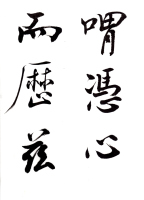 喟憑心
而歷茲